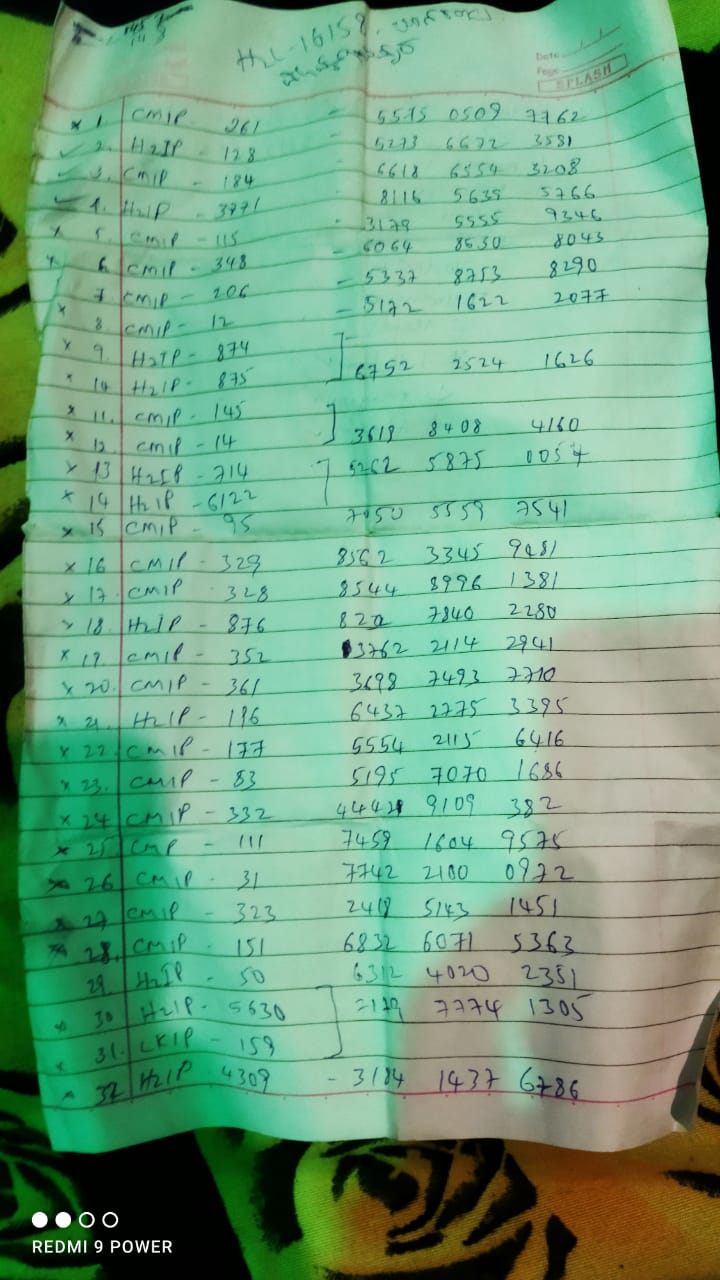 H2L-16159.
Date
Page
SPLASH
x 1. CMIP 261 - 5515 0509 7762
✓ 2. H2IP - 128 - 5273 6672 3531
✓ 3. CMIP - 184 - 6618 6554 3208
✓ 4. H2IP - 3771 8116 5639 5766
x 5. CMIP - 115 - 3179 5555 9346
x 6. CMIP - 348 - 6064 8530 8043
7 CMIP - 206 - 5337 8753 8290
x 8. CMIP - 12 - 5172 1622 2077
x 9. H2IP - 874
x 10. H2IP - 875 6752 2524 1626
x 11. CMIP - 145
x 12. CMIP - 14 3619 8408 4160
x 13 H2IP - 714 5262 5875 0054
x 14 H2IP - 6122
x 15 CMIP - 95 7050 5559 7541
x 16 CMIP - 329 8562 3345 9481
x 17. CMIP - 328 8544 8996 1381
x 18. H2IP - 876 7840 2280
x 19. CMIP - 352 3762 2114 2941
x 20. CMIP - 361 3698 7493 7710
x 21. H2IP - 196 6437 2775 3395
x 22. CMIP - 177 5554 2115 6416
x 23. CMIP - 83 5195 7070 1686
x 24 CMIP - 332 9109 382
x 25 CMP - 111 7459 1604 9575
x 26 CMIP - 31 7742 2100 0972
x 27 CMIP - 323 2419 5143 1451
x 28. CMIP - 151 6832 6071 5363
29 H2IP - 50 6312 4020 2351
x 30 H2IP - 5630 7774 1305
x 31. LKIP - 159
x 32 H2IP 4309 - 3184 1437 6786
REDMI 9 POWER